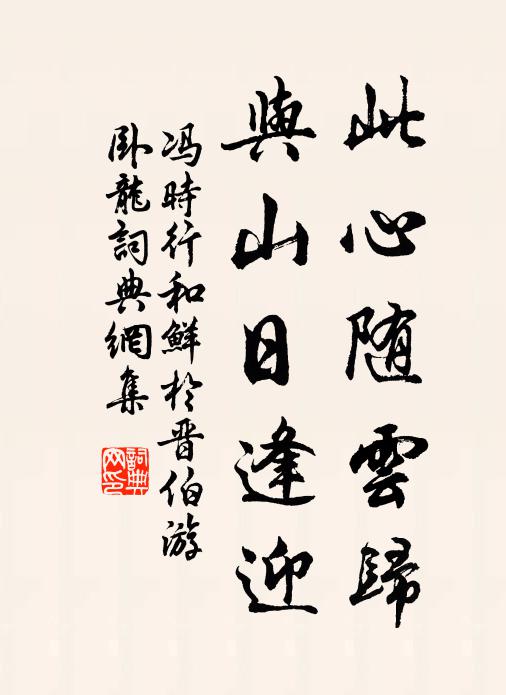 此心随雲歸
與山日逢迎
冯時行和鮮於晋伯游
卧龍詞典網集
詞典網印